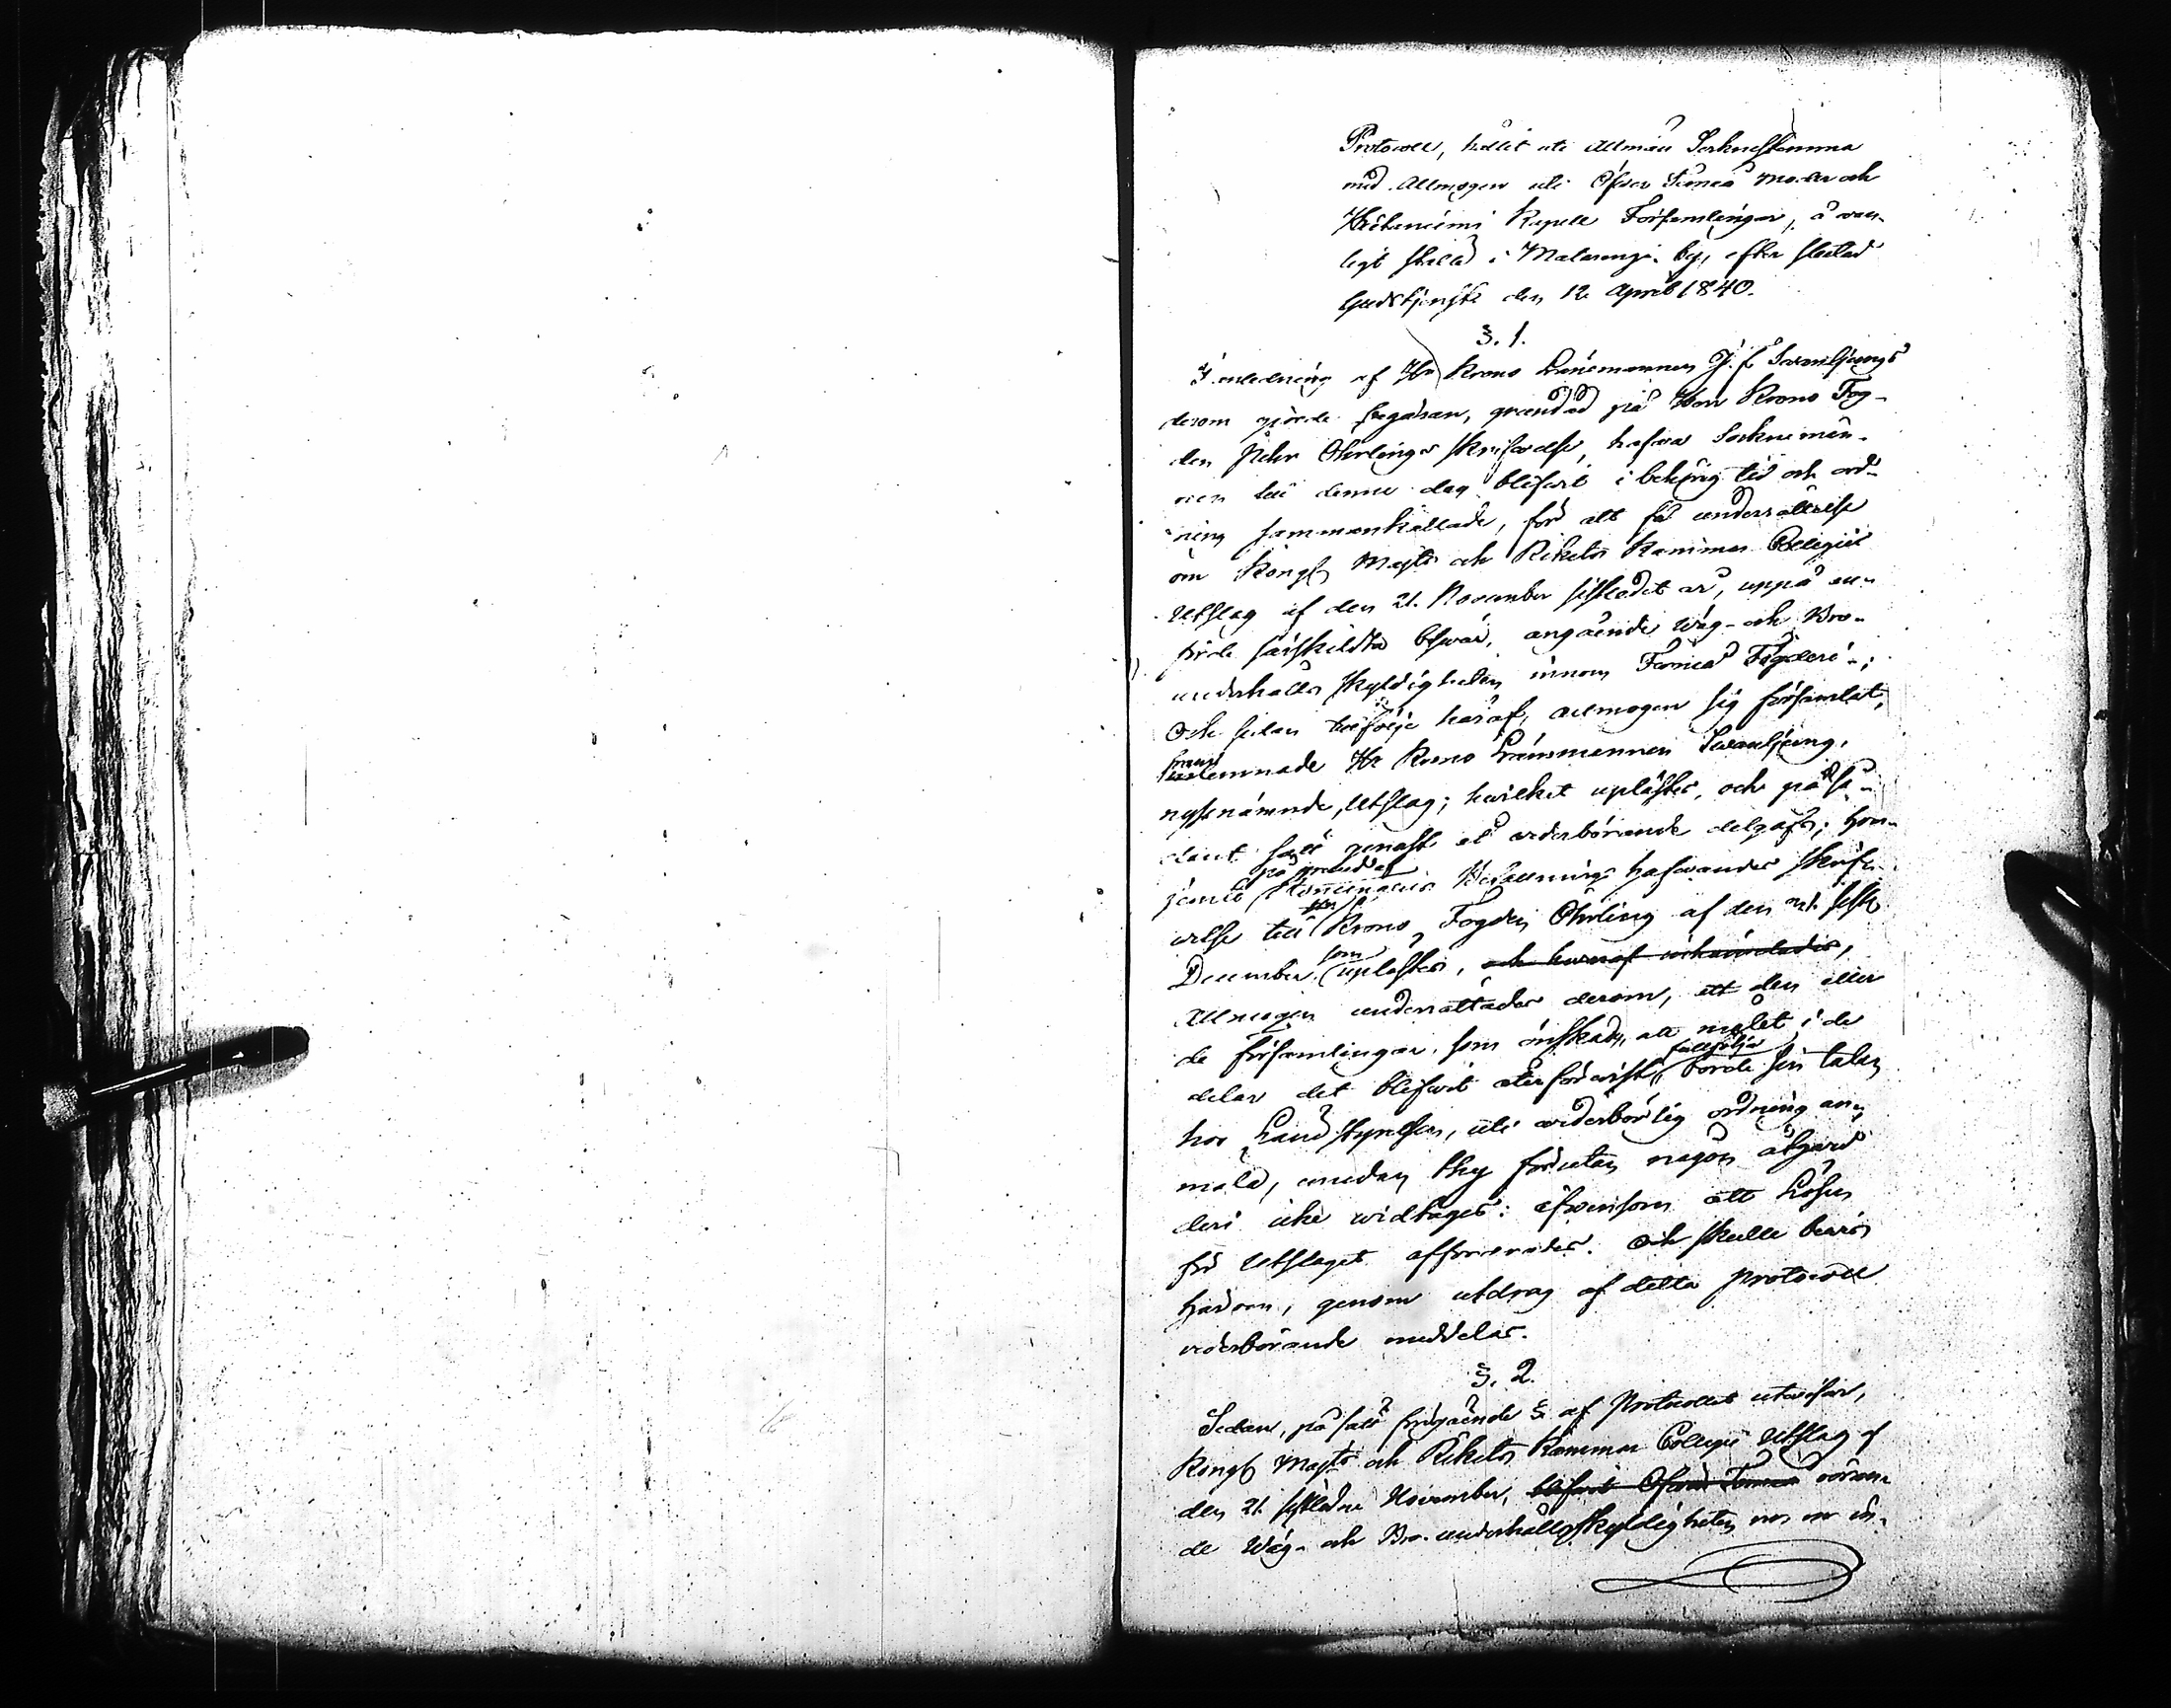 Protocoll, hållit uti allmän Sockenstämma
med Allmogen uti Öfver Torneå Moder och
Hietaniemi Kapell Församlingar, å van-
ligt ställe i Matarengi by, efter slutad
Gudstjenst den 12 April 1840.
§. 1.
I anledning af Hr Krono Länsmannen J. F. Svanljungs
derom gjorde begäran, grundad på Herr Krono Fog-
den Pehr Ohrlings skrifvelse, hafva Sockenmän-
nen till denne dag blifvit i behörig tid och ord-
ning sammankallade, för att få underrättelse
om Kongl. Majts och Rikets Kammar Collegii
Utslag af den 21. November sistledit år, uppå an-
förde särskildta besvär, angående Väg- och Bro-
underhålls skyldigheten innom Torneå Fögderi.;
Och sedan till följe häraf, allmogen sig församlat,
fram
lemnade Hr Krono Länsmannen Svanljung,
nyssnämnde Utslag; hvilket uplästes, och på så-
dant sätt genast åt vederbörande delgafs; hvar-
på grund af
jemte Konungens Befallnings hafvandes skrif-
Hr
velse till Krono Fogden Öhrling af den 21. sistl.
som
December uplästes, och
Allmogen underrättades derom, att den eller
de församlingar, som önskade, att målet i de
fullfölja
delar det blifvit återförvist, borde sin talan
hos Landstyrelsen, uti vederbörlig ordning an-
mäld, medan thy förutan någon åtgärd
deri icke vidtages: äfvensom att Lösen
för Utslaget affordrades. Och skulle bevis
härom, genom utdrag af detta protocoll
vederbörande meddelas.
§. 2.
Sedan, på sätt föregående § af Protocollet utvisar,
Kongl Majts och Rikets Kammar Collegii Utslag af
den 21 sistledne November, blifvit Öfver Torneå röran-
de Väg- och Bro-underhållsskyldigheten